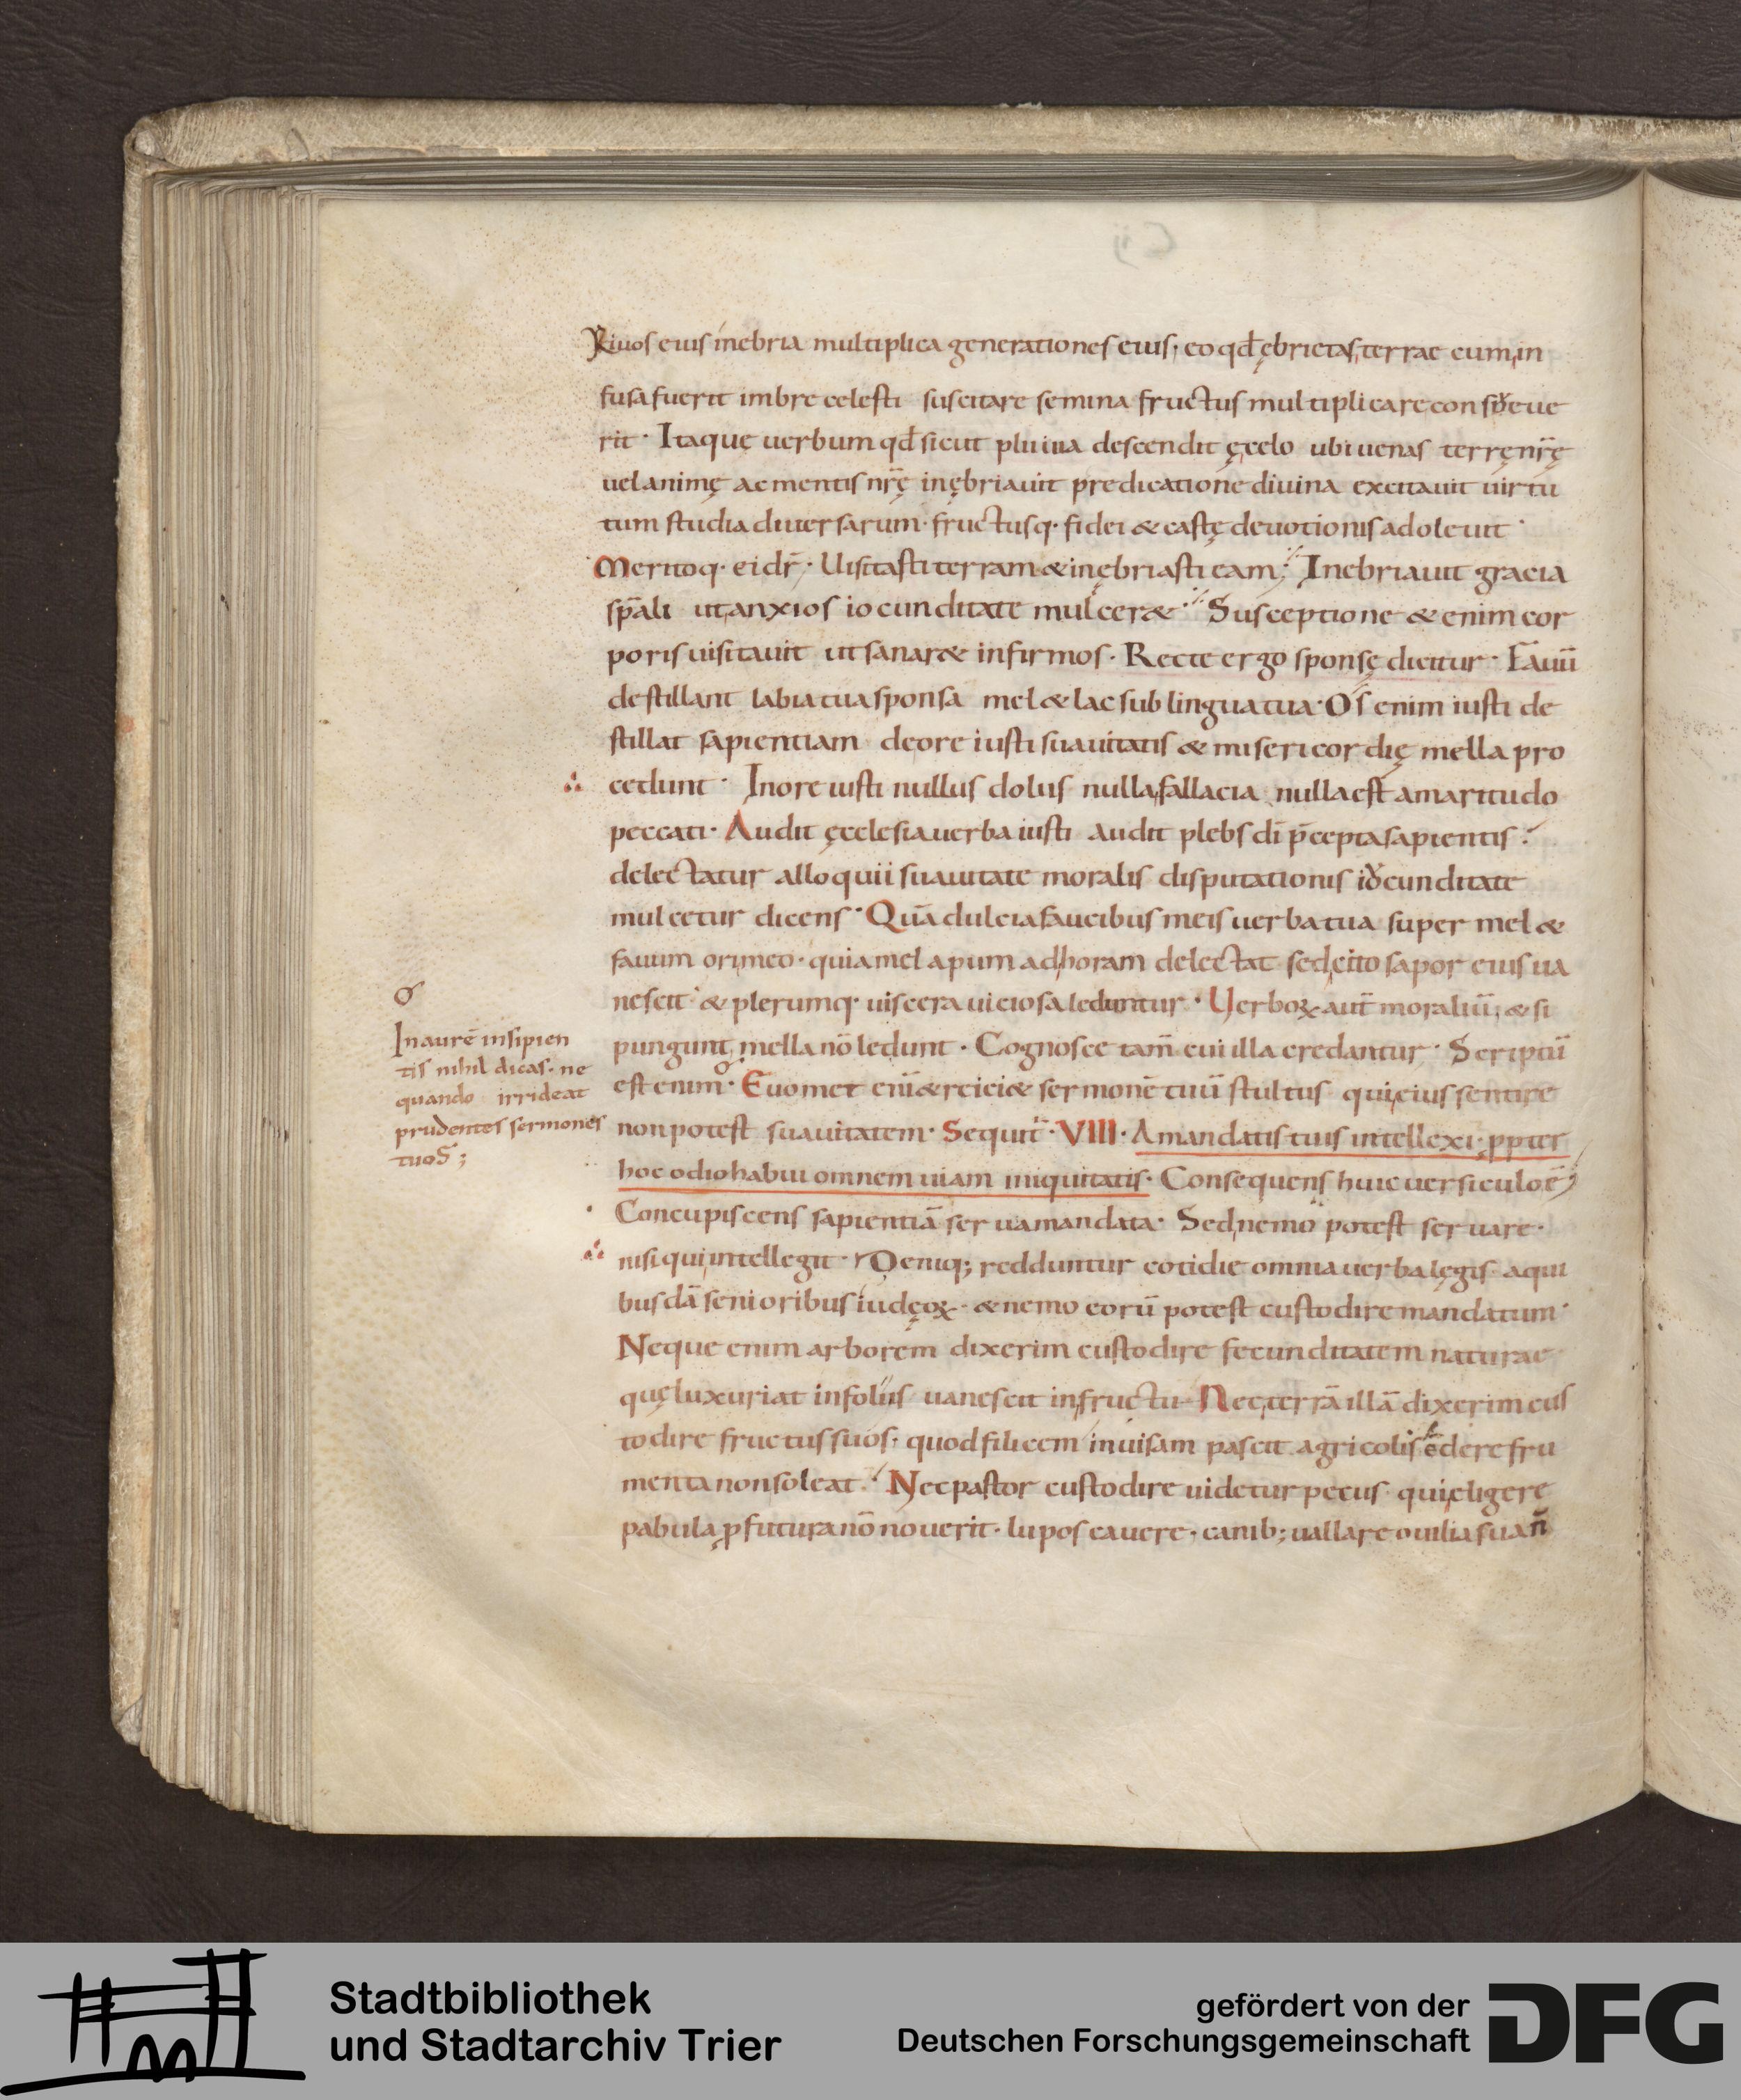 Riuos eius inebria multiplica generationes eius· eo qđ ębrietas terrae cum in
fusa fuerit imbre celesti suscitare semina fructus multiplicare consueue
rit· Itaque uerbum qđ sicut pluuia descendit ę cęlo ubi uenas terrę nr̄ę
uel animę ac mentis nr̄ę inębriauit predicatione diuina excitauit uirtu
tum studia diuersarum· fructusq· fidei & castę deuotionis adoleuit·
Meritoq· ei dr̄· Uisitasti terram & inębriasti eam; Inebriauit gracia
sp̄ali ut anxios iocunditate mulcer&· Susceptione & enim cor
poris uisitauit ut sanar& infirmos· Recte ergo sponsę dicitur· Fauū
destillant labia tua sponsa mel & lac sub lingua tua· Os enim iusti de
stillat sapientiam de ore iusti suauitatis & misericordię mella pro
cedunt· In ore iusti nullus dolus nulla fallacia nulla est amaritudo
peccati· Audit ęcclesia uerba iusti audit plebs dī p̄cepta sapientis·
delectatur alloquii suauitate moralis disputationis iocunditate
mulcetur dicens· Quā dulcia faucibus meis uerba tua super mel &
fauum ori meo· quia mel apum ad horam delectat sed cito sapor eius ua
nescit· & plerumq· uiscera uiciosa leduntur· Uerboꝝ aut̄ moraliū & si
pungunt mella nō ledunt· Cognosce tam̄ cui illa credantur· Scriptū
est enim· Euomet eni & reiciet sermonē tuū stultus qui eius sentire
non potest suauitatem· Sequit̄· VIII· A mandatis tuis intellexi· ꝓpter
hoc odio habui omnem uiam iniquitatis· Consequens huic uersiculo ē;
Concupiscens sapientiā serua mandata· Sed nemo potest seruare·
nisi qui intellegit· Deniq; redduntur cotidie omnia uerba lęgis a qui
busdā senioribus iudęoꝝ· & nemo eorū potest custodire mandatum·
Neque enim arborem dixerim custodire fecunditatem naturae
quę luxuriat in foliis uanescit in fructu· Nec terrā illā dixerim cus
todire fructus suos· quod filicem inuisam pascit agricolis edere fru
menta non soleat· Nec pastor custodire uidetur pecus qui eligere
pabula ꝓfutura nō nouerit· lupos cauere· canib; uallare ouilia sua n̄
In aurē insipien
tis nihil dicas· ne
quando irrideat
prudentes sermones
tuos;
Stadtbibliothek
und Stadtarchiv Trier
gefördert von der
Deutschen Forschungsgemeinschaft
DFG